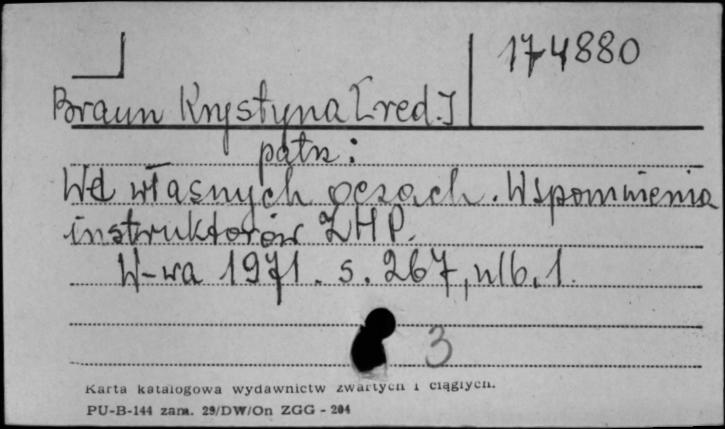 174880
Braun Krystyna [red.]
patrz:
We własnych oczach. Wspomnienia
instruktorów ZHP.
W-wa 1971. s. 267, nlb. 1.
3
Karta katalogowa wydawnictw zwartych i ciągłych.
PU-B-144 zam. 29/DW/On ZGG - 204